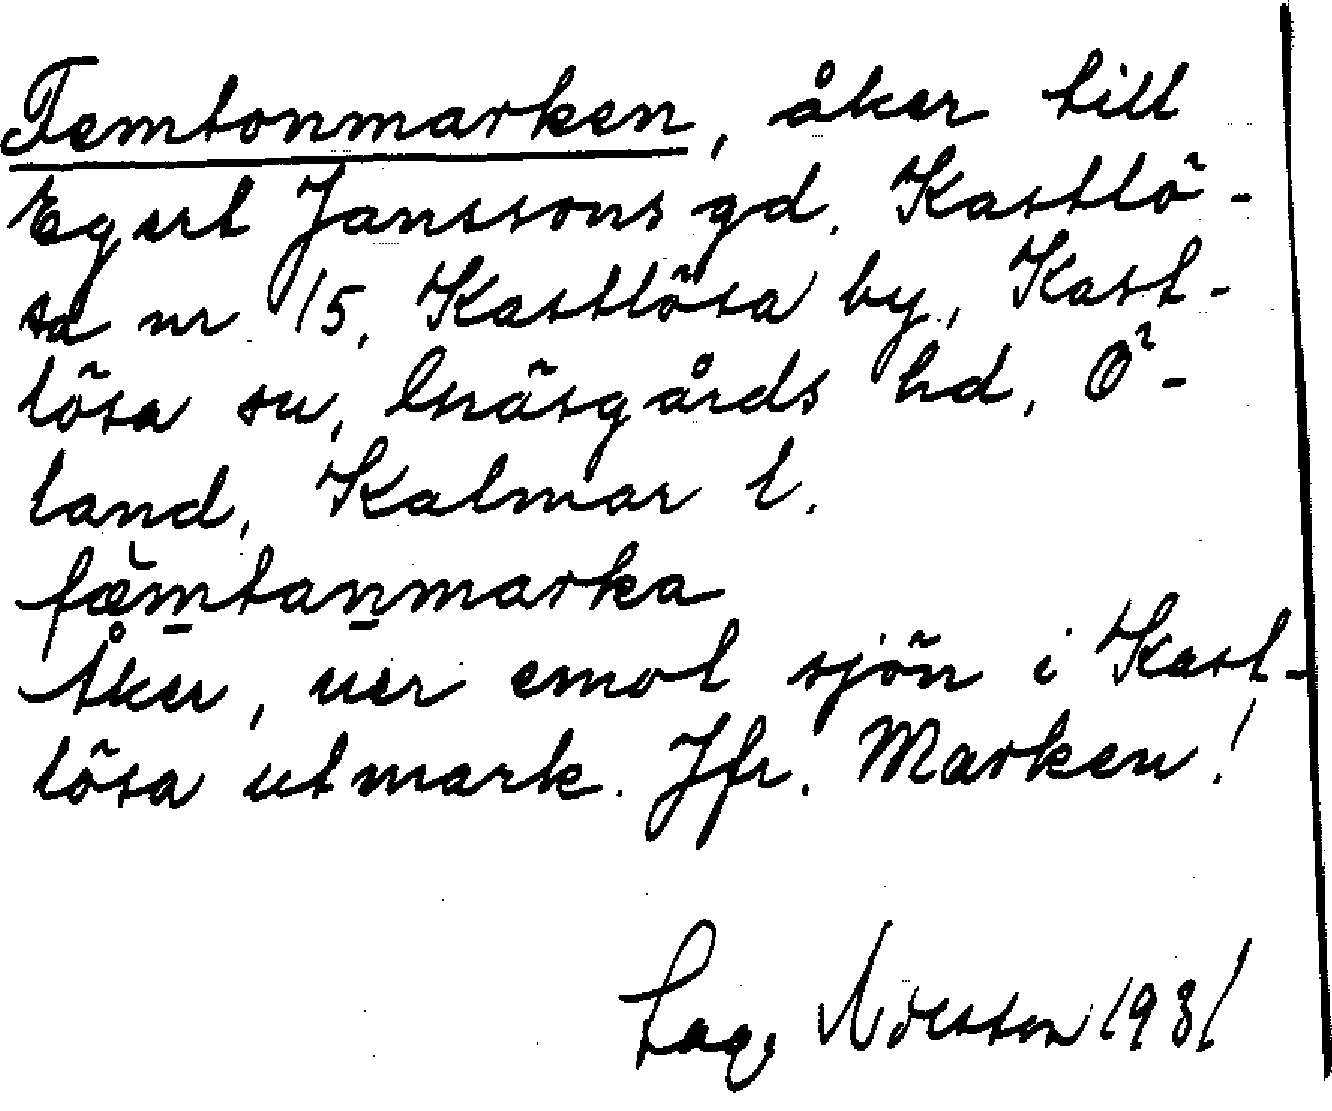 Femtonmarken, åker till
Egert Janssons gd. Kastlö-
sa nr 15, Kastlösa by, Kast-
lösa sn, Gräsgårds hd, Ö-
land, Kalmar l.
fæ̆m̱tan̠marka
Åker, ner emot sjön i Kast-
lösa utmark. Jfr. Marken!
1931